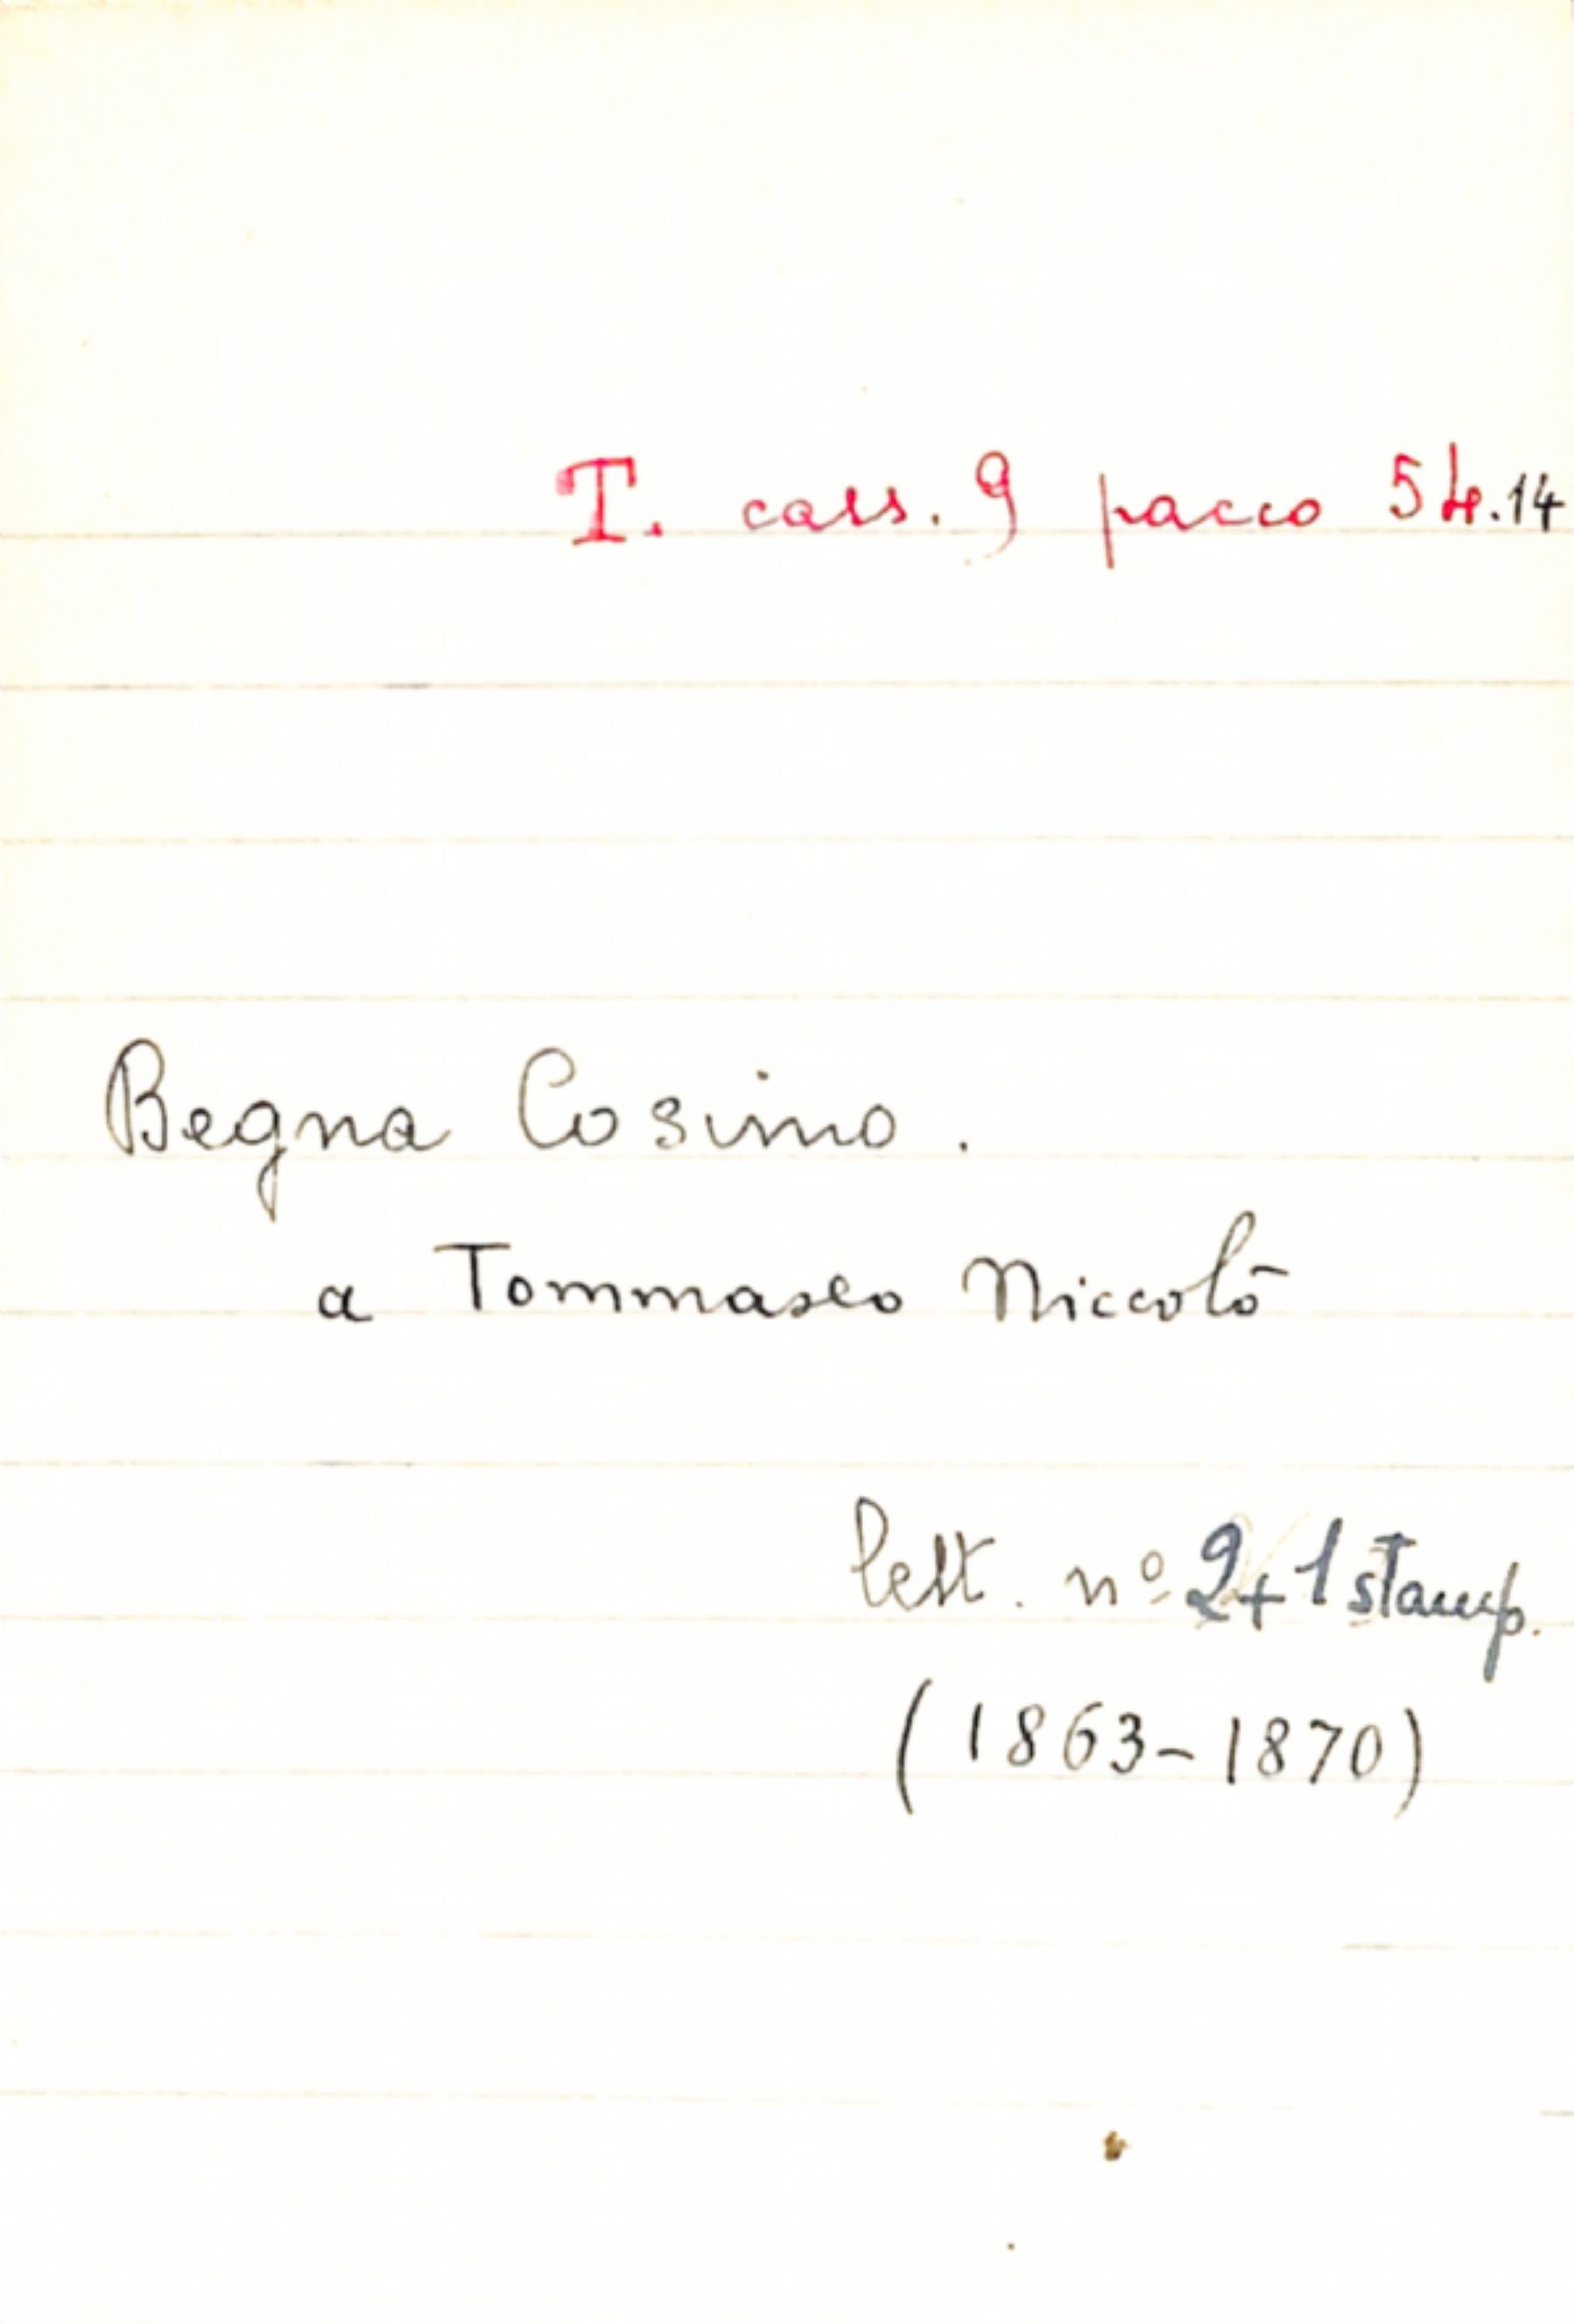 T. cass. 9 pacco 54.14
Begna Cosimo.
a Tommaseo Niccolò
lett. nº 2+1 stamp.
(1863-1870)